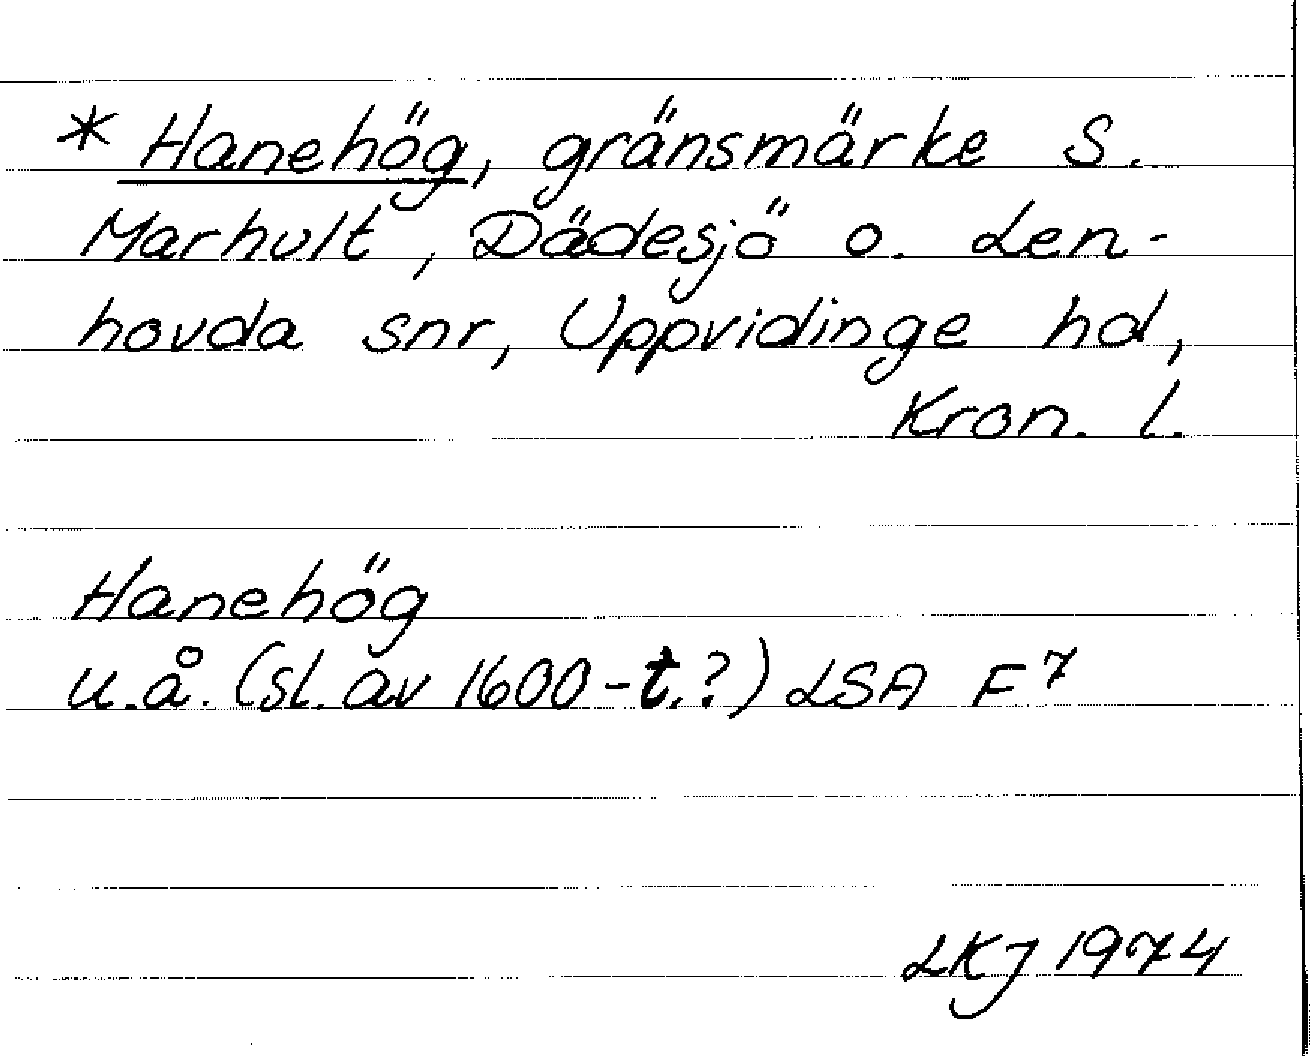 * Hanehög, gränsmärke S.
Marhult, Dädesjö o. Len-
hovda snr, Uppvidinge hd,
Kron. l.
Hanehög
u.å. (sl. av 1600-t.?) LSA F⁷
LKJ 1974